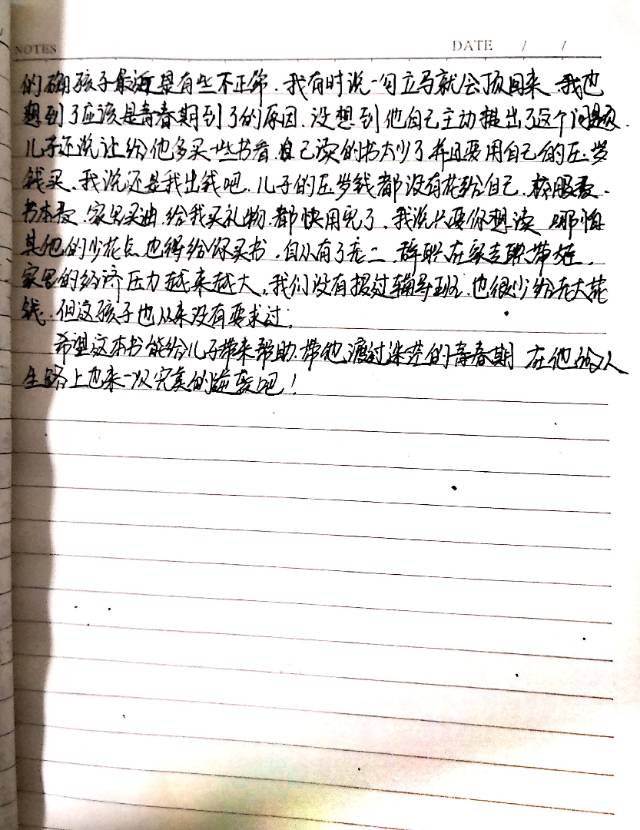 NOTES
DATE / /
的确孩子最近是有些不正常,我有时说一句立马就会顶回来,我也
想到了应该是青春期到了的原因,没想到他自己主动提出了这个问题,
儿子还说让给他多买一些书看,自己读的书太少了,并且要用自己的压岁
钱买,我说还是我出钱吧,儿子的压岁钱都没有花给自己,校服费、
书本费、家里买油、给我买礼物,都快用完了,我说只要你想读,哪怕
其他的少花点也得给你买书,自从有了老二,辞职在家专职带娃,
家里的经济压力越来越大,我们没有报过辅导班,也很少给孩大花
钱,但这孩子也从来没有要求过。
希望这本书能给儿子带来帮助,带他渡过迷茫的青春期,在他的人
生路上也来一次完美的逆袭吧!